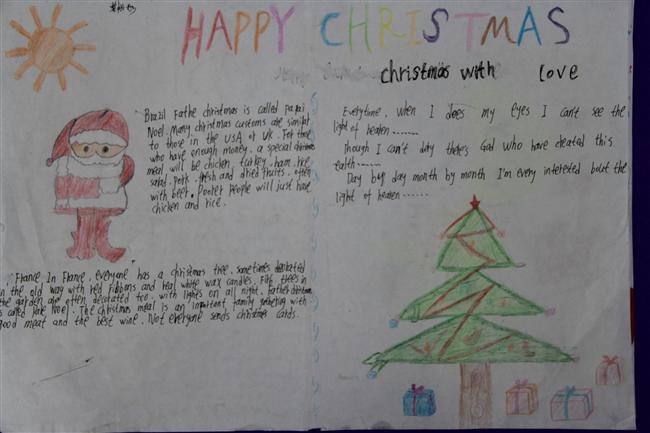 HAPPY CHRISTMAS
christmas with love
Brazil Fathe christmas is called papai
Noel. Many christmas customs are similar
to those in the USA or UK. For those
who have enough money. a special christmas
meal will be chicken, turkey, ham, rice
salad. Pork. fresh and dried fruits. often
with beer. Poorer people will just have
chicken and rice.
Everytime, when I does my eyes I can't see the
light of heaven......
Though I can't day there's God who have cleated this
earth......
Day by day month by month I'm every interested but the
light of heaven......
France In France, everyone has a christmas tree, sometimes decorated
in the old way with red ribbons and real white wax candles. Fir trees in
the garden are often decorated too, with lights on all night. Father christmas
is called Noel. The christmas meal is an important family gathering with
good meat and the best wine. Not everyone sends christmas cards.